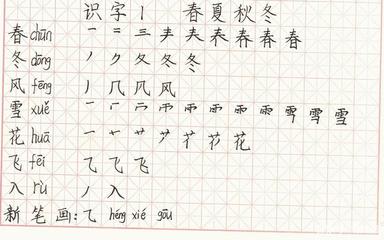 识字1 春夏秋冬
春 chūn 一 二 三 声 夫 表 春 春 春
冬 dōng 丿 ク 夂 冬 冬
风 fēng 丿 几 凡 风
雪 xuě 一 雨 雨 雨 雪 雪 雪
花 huā 一 十 艹 花
飞 fēi 乁 飞 飞
入 rù 丿 入
新笔画：乁 héng xié gōu